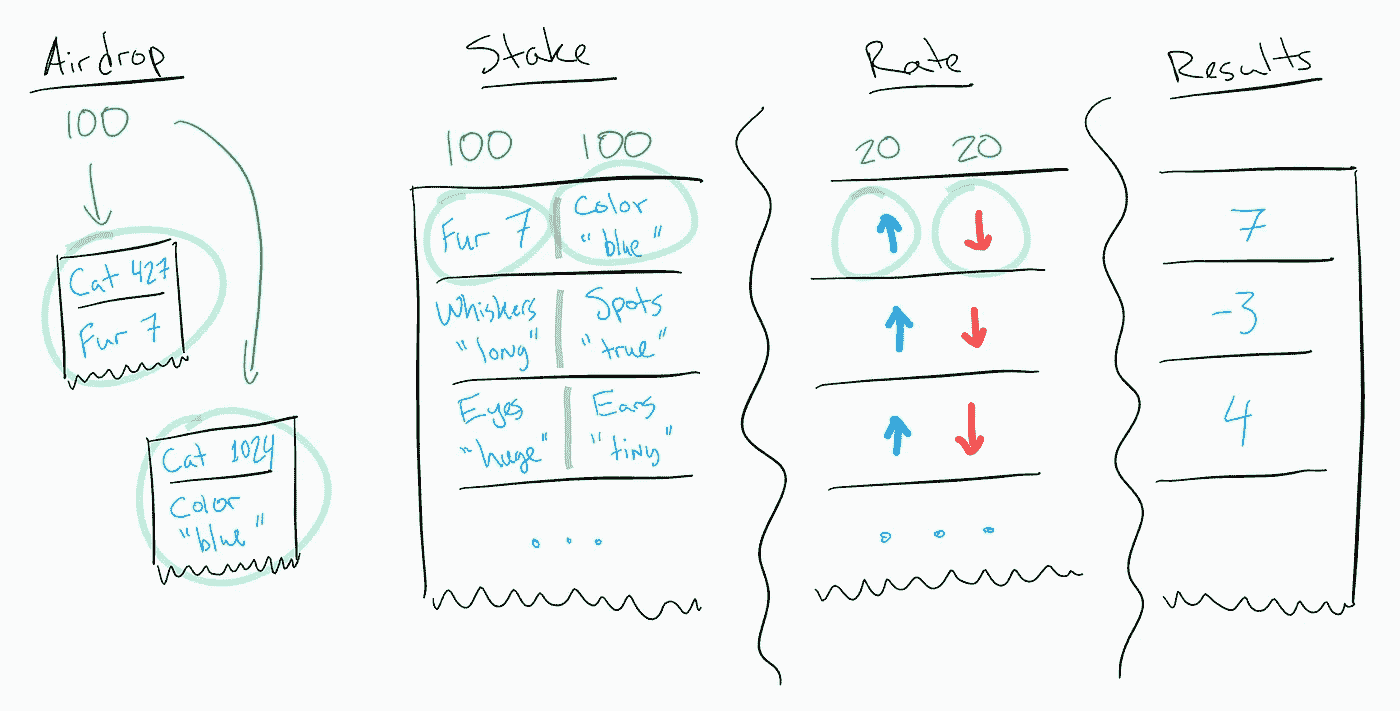 Airdrop
100
Cat 427
Fur 7
Cat 1024
Color
"blue"
Stake
100 100
Fur 7
Color
"blue"
Whiskers
"long"
Spots
"true"
Eyes
"huge"
Ears
"tiny"
...
Rate
20 20
...
Results
7
-3
4